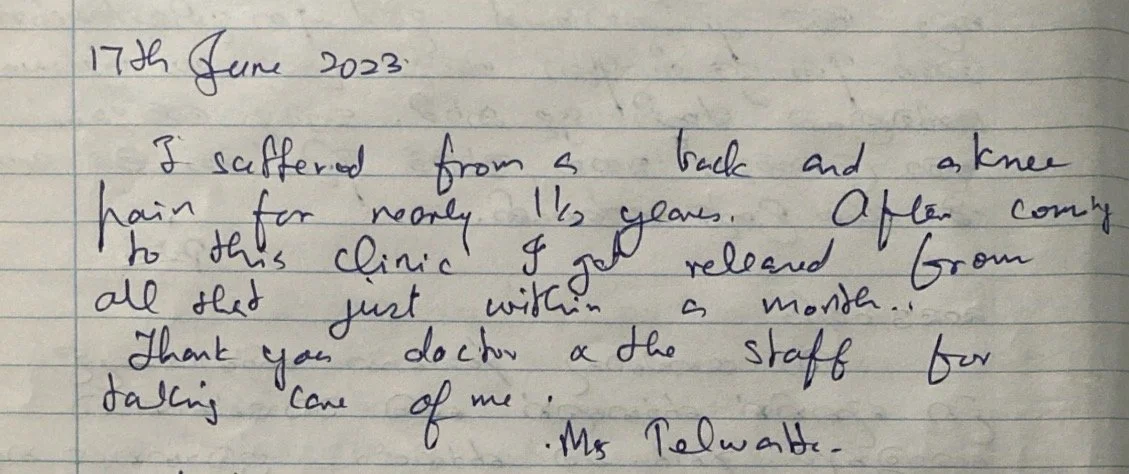 17th June 2023.
I suffered from a back and a knee
pain for nearly 1 1/2 years. After coming
to this clinic I got released from
all that just within a month..
Thank you doctor & the staff for
taking care of me.
.Ms